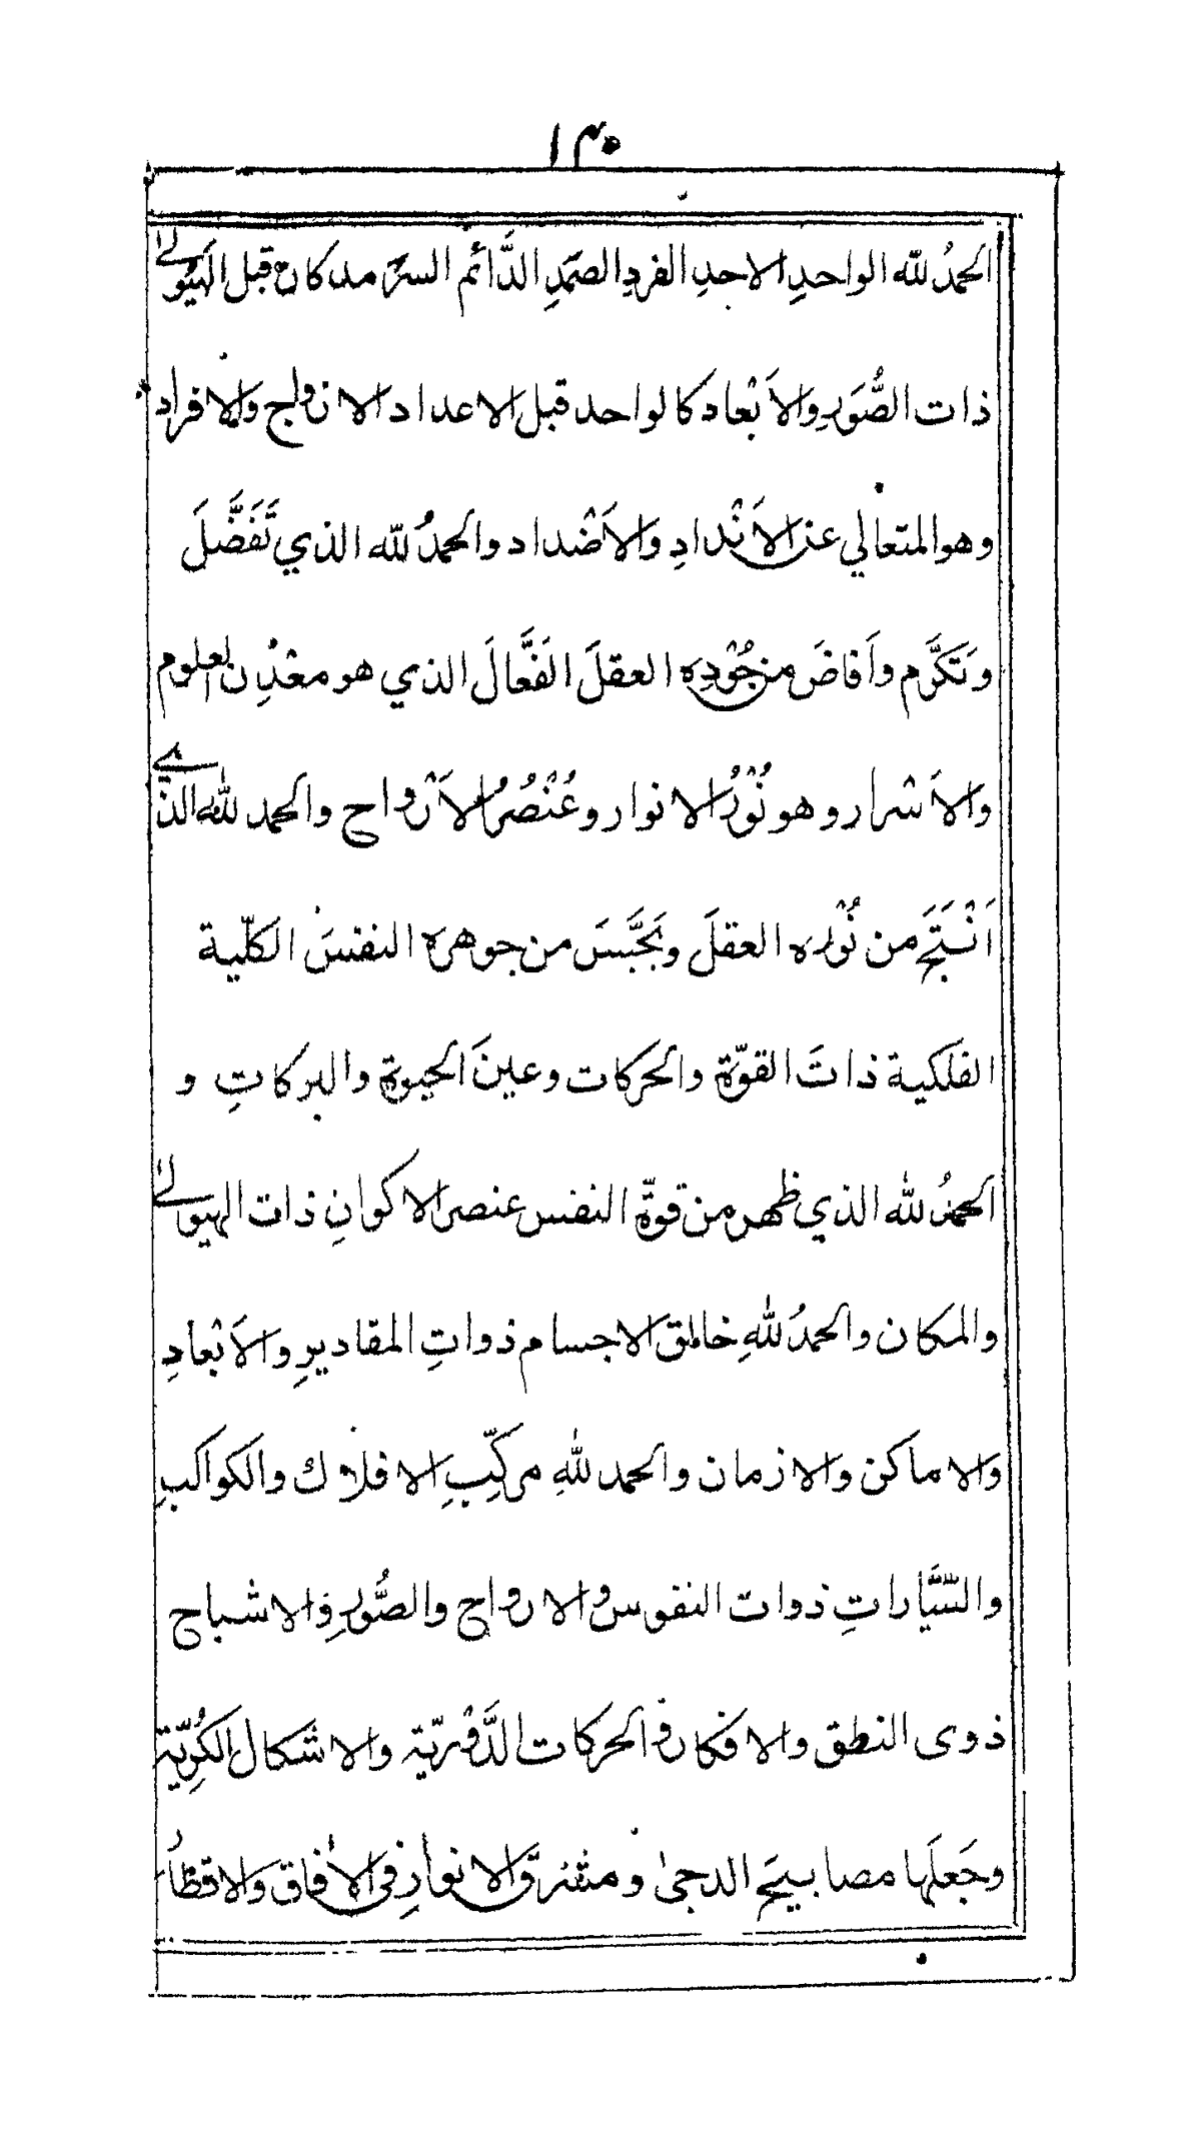 ١٣٥
الحمدُ لله الواحدِ الاحدِ الفردِ الصمَدِ الدَّائم السرمد كان قبل الهيُولى
ذات الصُّوَرِ والاَبْعاد كالواحد قبل الاعداد الازواج والافراد
وهو المتعالي عن الاَنْدادِ والاَضْداد والحمدُ لله الذي تَفَضَّلَ
وَتَكَرَّم واَفاضَ من جُوْدِه العقلَ الفَعَّالَ الذي هو معْدِن العلوم
والاَسرار وهو نُوْرُ الانوار وعُنْصُرُ الاَرْواح والحمد لله الذے
اَنْتَجَ من نُوْره العقلَ وبَجَّسَ من جوهره النفسَ الكلّية
الفلكية ذاتَ القوّة والحركات وعينَ الحيوة والبركاتِ و
الحمدُ لله الذي ظهر من قوّة النفس عنصر الاكوانِ ذات الهيولى
والمكان والحمدُ للهِ خالق الاجسام ذواتِ المقاديرِ والاَبْعادِ
والاماكن والازمان والحمد للهِ مركِّبِ الافلاك والكواكبِ
والسَّيّاراتِ ذوات النفوس والارواح والصُّورِ والاشباح
ذوى النطق والافكار والحركات الدَّوْرِيّة والاشكال الكُرِيّة
وجَعَلَها مصابيحَ الدجىٰ ومشرق الانوارِ فى الاٰفاق والاقطار